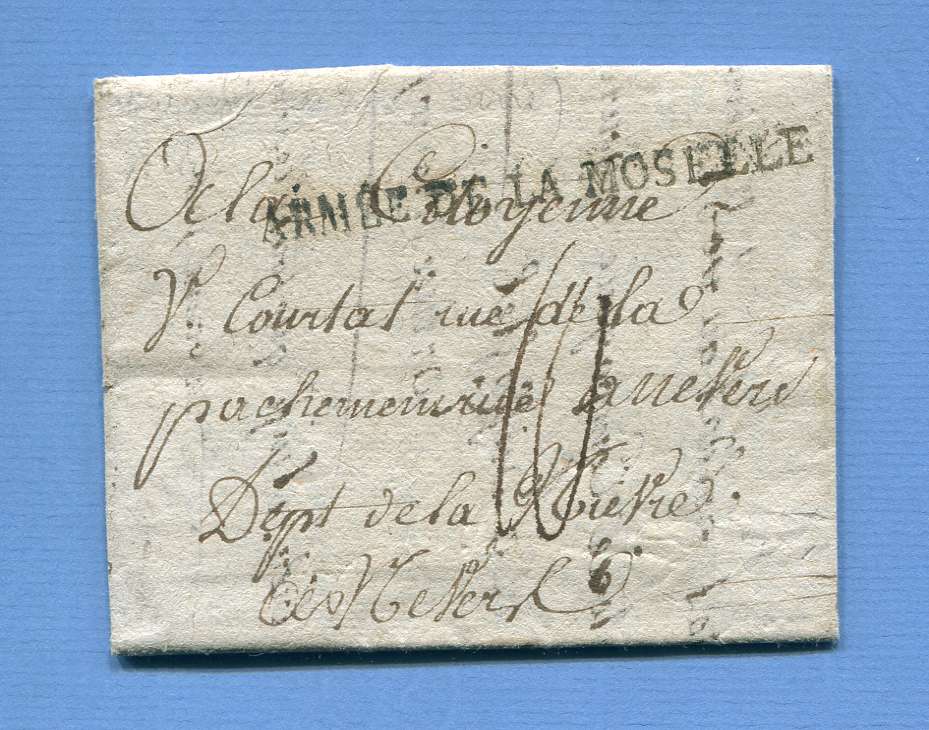 ARMEE DE LA MOSELLE
A la Citoyenne
Ve Courtat rue de la
pachemenrie a nevers
Dept de la Nievre
A Nevers